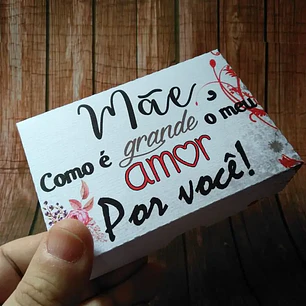 Mãe
Como é grande o meu
amor
Por você!